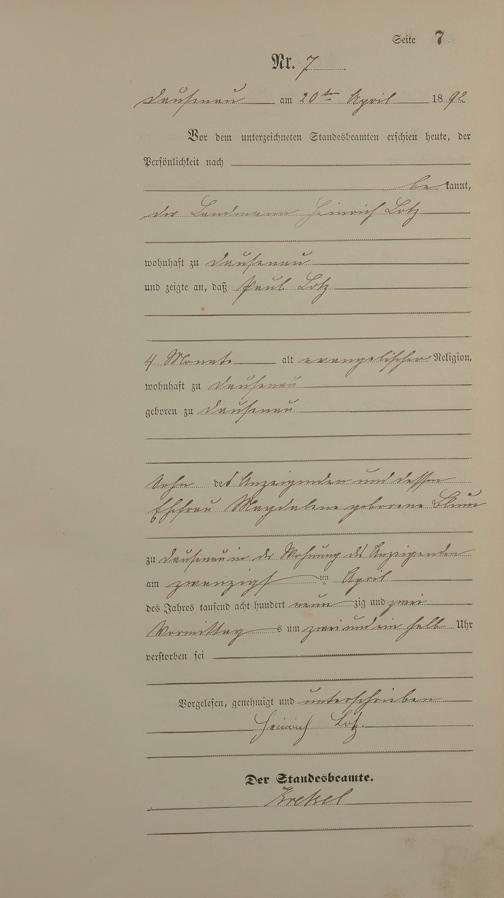 Seite 7
Nr. 7
Dausenau am 20ten April 1892
Vor dem unterzeichneten Standesbeamten erschien heute, der
Persönlichkeit nach
be kannt,
der Landmann Heinrich Lotz
wohnhaft zu Dausenau
und zeigte an, daß Paul Lotz
4 Monate alt evangelischer Religion,
wohnhaft zu Dausenau
geboren zu Dausenau
Sohn des Anzeigenden und dessen
Ehefrau Magdalene geborene Blum
zu Dausenau in der Wohnung des Anzeigenden
am zwanzigsten April
des Jahres tausend acht hundert neun zig und zwei
Vormittag s um zwei und ein halb Uhr
verstorben sei
Vorgelesen, genehmigt und unterschrieben
Heinrich Lotz
Der Standesbeamte.
Krekel